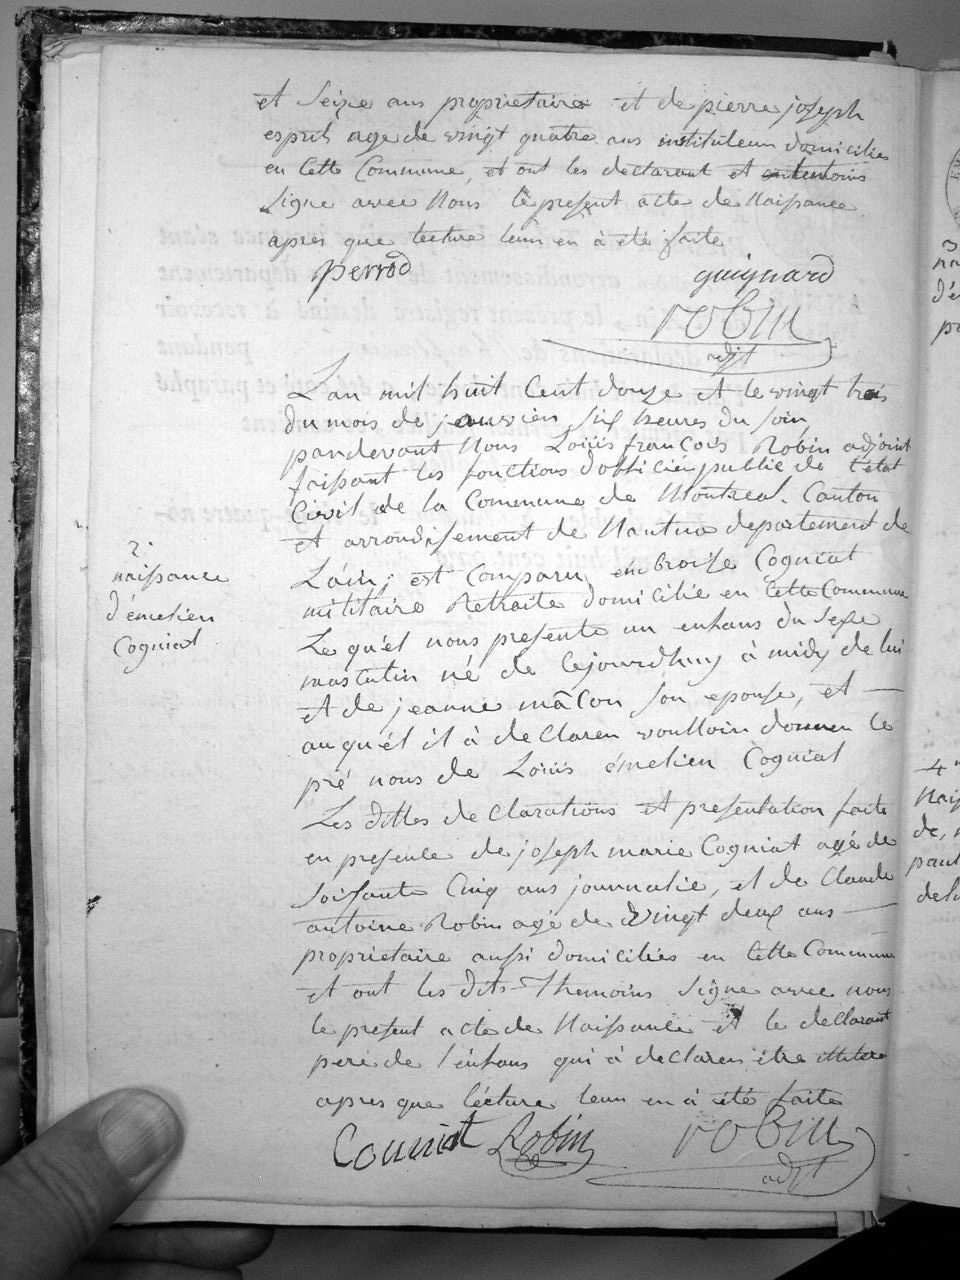 et Seize ans proprietaire et de pierre joseph
esprit age de vingt quatre ans instituteur domiciliés
en Cette Commune, et ont les declarant et temoins
Signe avec Nous le present acte de Naissance
apres que lecture leur en à été faite
perrod guignard
robin
adjt
L'an mil huit Cent douze et le vingt trois
du mois de janvier Six heures du soir
pardevant Nous Louis françois Robin adjoint
faisant les fonctions d'officié publié de l'état
Civil de la Commune de Montreal. Canton
et arrondissement de Nantua departement de
L'ain; est Comparu embroise Cogniat
militaire Retraite domicilié en Cette Commune
Le qu'el nous presente un enfans du Sexe
masculin né de Cejourdhuy à midy de lui
et de jeanne mâcon son epouse, et
auqu'él il à declaren voulloir donner le
pré nous de Louis émelien Cogniat
Les dittes declarations et presentation faite
en presence de joseph marie Cogniat agé de
Soisante Cinq ans journalié, et de Claude
antoine Robin agé de vingt deux ans
proprietaire aussi domiciliés en Cette Commune
et ont les dits Themoins Signe avec nous
le present acte de Naissance et le declarant
peré de l'enfans qui à declaren être illitere
apres que lécture leur en à été faite
Couniat Robin robin
adjt
2.
naissance
d'émelien
Cogniat
3
na
d'é
4
Nais
de,
paul